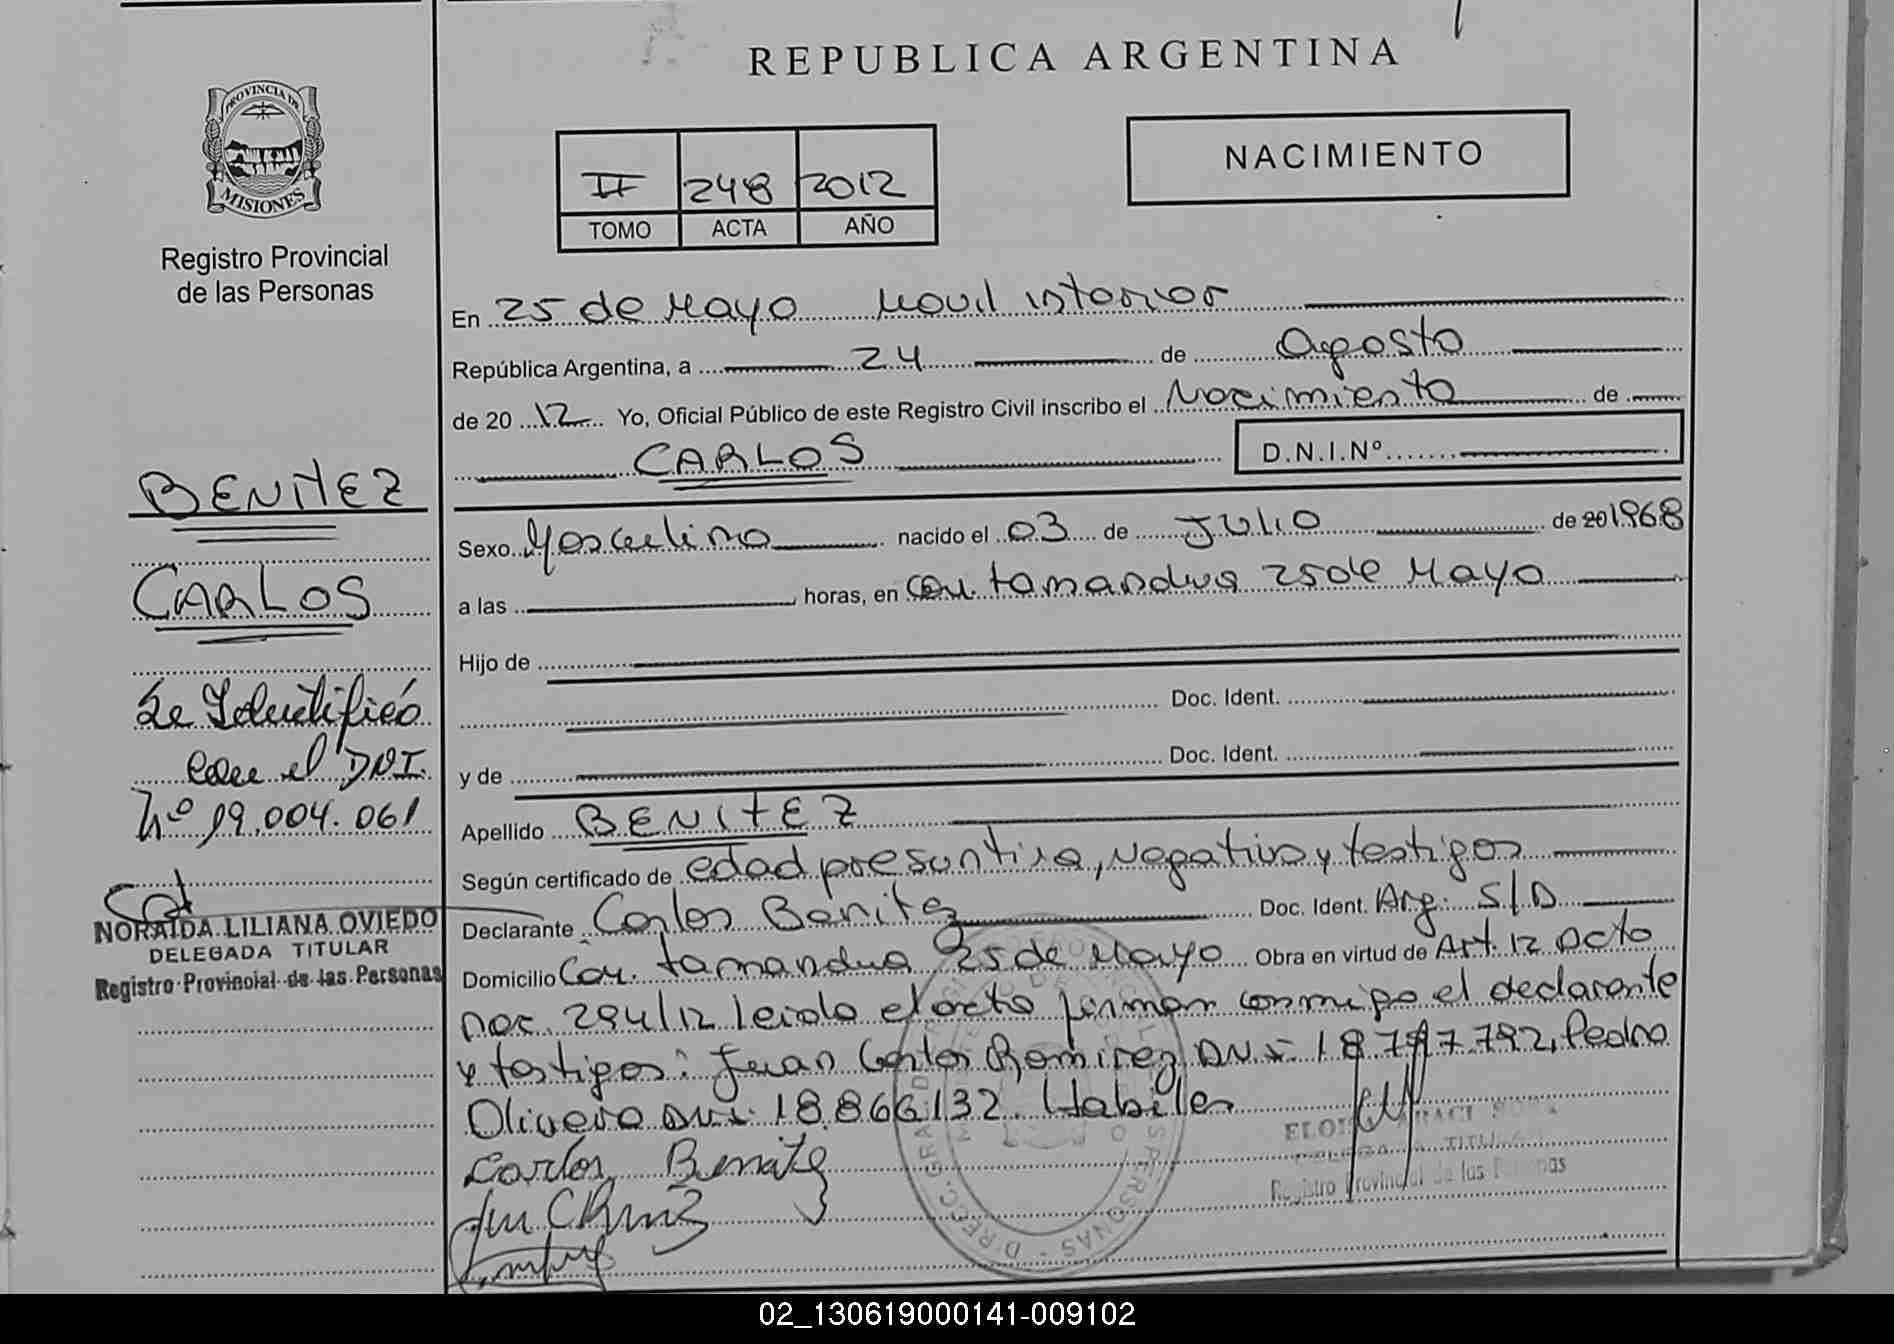 REPUBLICA ARGENTINA
PROVINCIA DE
MISIONES
Registro Provincial
de las Personas
NACIMIENTO
II 248 2012
TOMO ACTA AÑO
En 25 de Mayo Movil interior
República Argentina, a 24 de Agosto
de 20 12 Yo, Oficial Público de este Registro Civil inscribo el Nacimiento de
CARLOS D.N.I.Nº
Sexo Masculino nacido el 03 de JULIO de 20 1968
a las horas, en Col. tamandua 25 de Mayo
Hijo de
Doc. Ident.
y de Doc. Ident.
Apellido BENITEZ
Según certificado de edad presuntiva, negativa y testigos
Declarante Carlos Benitez Doc. Ident. Arg. S/D
Domicilio Col. tamandua 25 de Mayo Obra en virtud de Art. 12 Dcto
nac. 294/12 leida el acta firman conmigo el declarante
y testigos: Juan Carlos Ramirez DNI 18.797.792, Pedro
Olivera DNI 18.866.132. Habiles
Carlos Benitez
BENITEZ
CARLOS
Se Identificó
con el DNI.
Nº 19.004.061
NORAIDA LILIANA OVIEDO
DELEGADA TITULAR
Registro Provincial de las Personas
DELEGADA TITULAR
Registro Provincial de las Personas
02_130619000141-009102